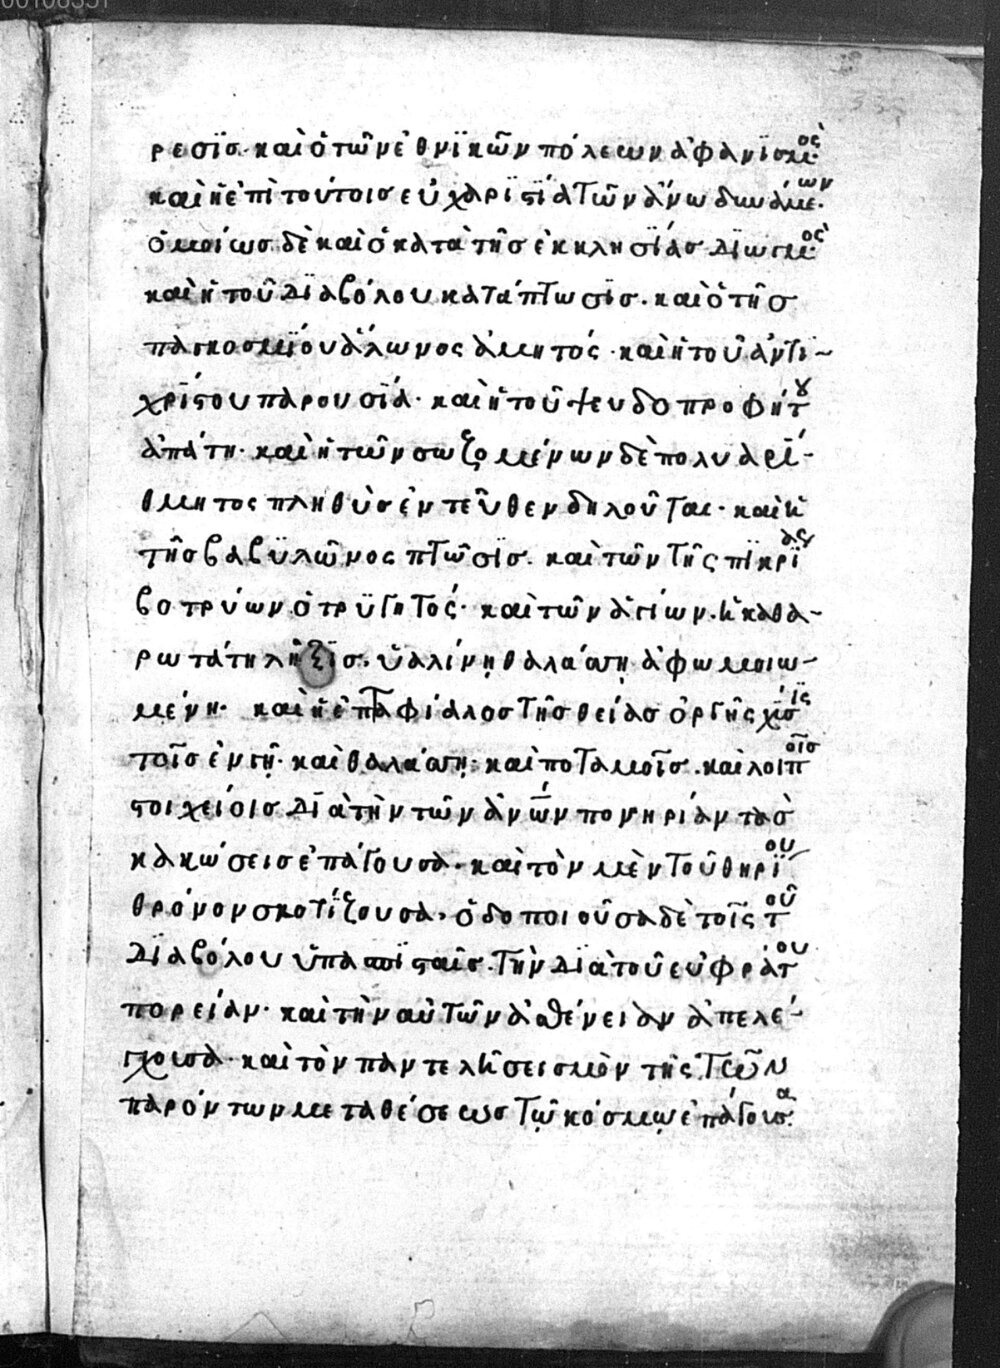 ρεσϊσ· καὶ ὁ τῶν ἐθνϊκῶν πόλεων ἀφανϊσμὸς
καὶ ἡ ἐπὶ τούτοισ εὐχαρϊστία τῶν ἄνω δυνάμεων·
ὁμοίωσ δὲ καὶ ὁ κατὰ τῆσ ἐκκλησϊάσ δϊωγμὸς
καὶ ἡ τοῦ δϊαβόλου κατάπτωσϊσ· καὶ ὁ τῆσ
παγκοσμϊόυ ἅλωνος ἀμητός· καὶ ἡ τοῦ ἀντι
χρίστου παρουσϊά· καὶ ἡ τοῦ ψευδοπροφήτου
ἀπάτη· καὶ ἡ τῶν σωζομένων δὲ πολυαρί
θμητος πληθὺσ ἐντεῦθεν δηλοῦται· καὶ ἡ
τῆσ βαβϋλῶνος πτῶσϊσ· καὶ τῶν τῆς πϊκρϊάς
βοτρύων ὁ τρϋγητός· καὶ τῶν ἁγίων· ἡ καθα
ρωτάτη λῆξϊσ· ὑαλίνῃ θαλάσσῃ ἀφωμοιω
μένη· καὶ ἡ ἑπταφίαλοσ τῆσ θείασ ὀργῆς χύσϊς
τοῖσ ἐν γῇ· καὶ θαλάσσῃ· καὶ ποταμοῖσ· καὶ λοιποῖσ
στοιχείοισ διὰ τὴν τῶν ἀνῶν πονηρίαν τὰσ
κακώσεισ ἐπάγουσα· καὶ τὸν μὲν τοῦ θηρϊου
θρόνον σκοτίζουσα, ὁδοποιοῦσα δὲ τοῖς τοῦ
δϊαβόλου ὑπασπϊσταῖσ· τὴν δϊὰ τοῦ εὐφράτου
πορείαν· καὶ τὴν αὐτῶν ἀσθένειαν ἀπελέ
γχουσα· καὶ τὸν παντελῆ σεισμὸν τῆς τῶν
παρόντων μεταθέσεωσ τῷ κόσμῳ ἐπάγουσα·